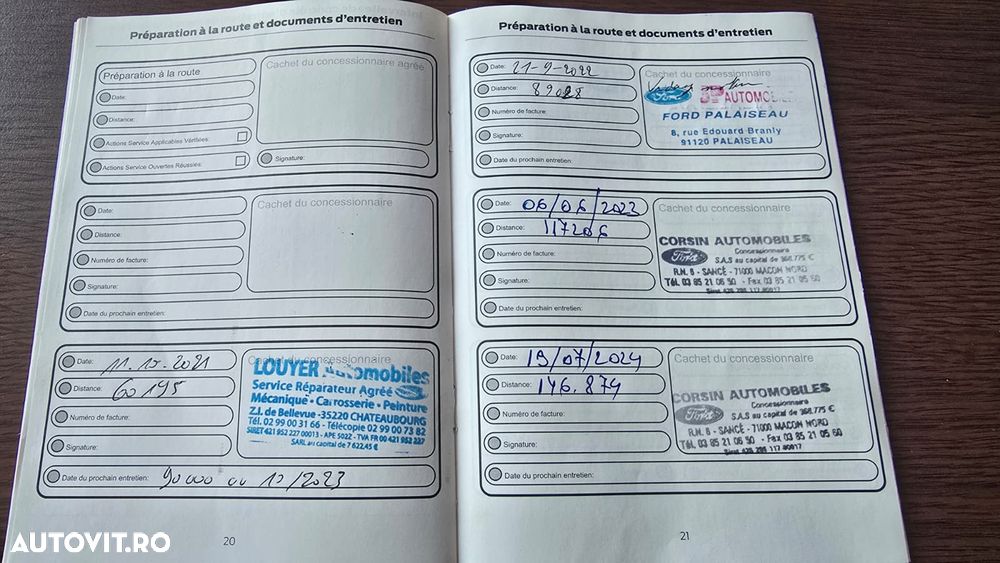 Préparation à la route et documents d'entretien
Préparation à la route
Date:
Distance:
Actions Service Applicables Vérifiées:
Actions Service Ouvertes Réussies:
Cachet du concessionnaire agréé
Signature:
Date:
Distance:
Numéro de facture:
Signature:
Date du prochain entretien:
Cachet du concessionnaire
Date: 11.10.2021
Distance: 60195
Numéro de facture:
Signature:
Date du prochain entretien: 90000 ou 10/2023
Cachet du concessionnaire
LOUYER Automobiles
Service Réparateur Agréé
Mécanique - Carrosserie - Peinture
Z.I. de Bellevue - 35220 CHATEAUBOURG
Tél. 02 99 00 31 66 - Télécopie 02 99 00 73 82
SIRET 421 952 227 00013 - APE 502Z - TVA FR 00 421 952 227
SARL au capital de 7 622,45 €
20
Préparation à la route et documents d'entretien
Date: 21-9-2022
Distance:
Numéro de facture:
Signature:
Date du prochain entretien:
Cachet du concessionnaire
Ford JP AUTOMOBILE
FORD PALAISEAU
8, rue Edouard Branly
91120 PALAISEAU
Date: 06/06/2023
Distance: 117206
Numéro de facture:
Signature:
Date du prochain entretien:
Cachet du concessionnaire
CORSIN AUTOMOBILES
Concessionnaire
Ford S.A.S au capital de 368.775 €
R.N. 6 - SANCÉ - 71000 MACON NORD
Tél. 03 85 21 06 50 - Fax 03 85 21 05 60
Date: 19/07/2024
Distance: 146.874
Numéro de facture:
Signature:
Date du prochain entretien:
Cachet du concessionnaire
CORSIN AUTOMOBILES
Concessionnaire
Ford S.A.S au capital de 368.775 €
R.N. 6 - SANCÉ - 71000 MACON NORD
Tél. 03 85 21 06 50 - Fax 03 85 21 05 60
21
AUTOVIT.RO